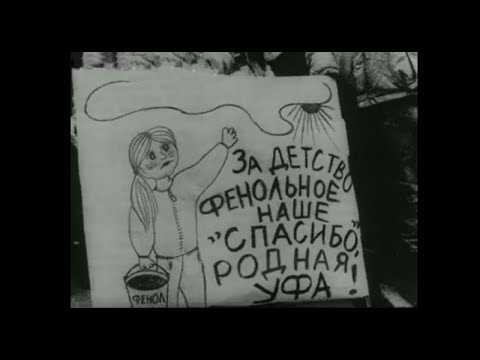 ЗА ДЕТСТВО
ФЕНОЛЬНОЕ
НАШЕ
"СПАСИБО,"
РОДНАЯ
УФА!
ФЕНОЛ